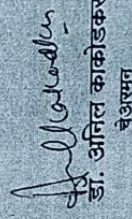 डॉ. अनिल काकोडकर
चेअरमन